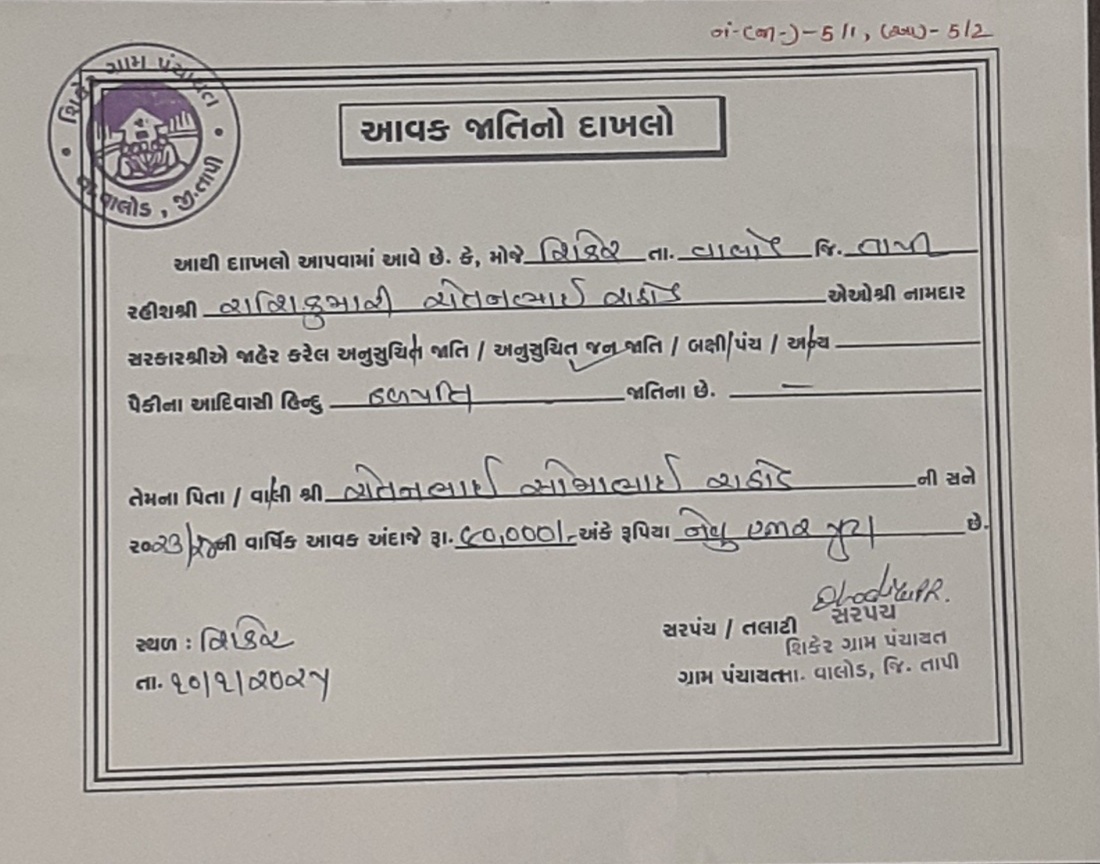 નં-(જા-)-5/1, (આ)-5/2
શિકેર ગ્રામ પંચાયત
તા.વાલોડ, જી.તાપી
આવક જાતિનો દાખલો
આથી દાાખલો આપવામાં આવે છે. કે, મોજે શિકેર તા. વાલોડ જિ. તાપી
રહીશશ્રી રાશિકુમારી ચેતનભાઈ રાઠોડ એઓશ્રી નામદાર
સરકારશ્રીએ જાહેર કરેલ અનુસુચિત જાતિ / અનુસુચિત જન જાતિ / બક્ષી પંચ / અન્ય
પૈકીના આદિવાસી હિન્દુ હળપતિ જાતિના છે. —
તેમના પિતા / વાલી શ્રી ચેતનભાઈ સોમાભાઈ રાઠોડ ની સને
૨૦૨૩/૨૪ની વાર્ષિક આવક અંદાજે રૂા. ૯૦,૦૦૦/- અંકે રૂપિયા નેવુ હજાર પુરા છે.
સ્થળ : શિકેર
તા. ૧૦/૧/૨૦૨૫
સરપંચ / તલાટી સરપંચ
શિકેર ગ્રામ પંચાયત
ગ્રામ પંચાયત તા. વાલોડ, જિ. તાપી